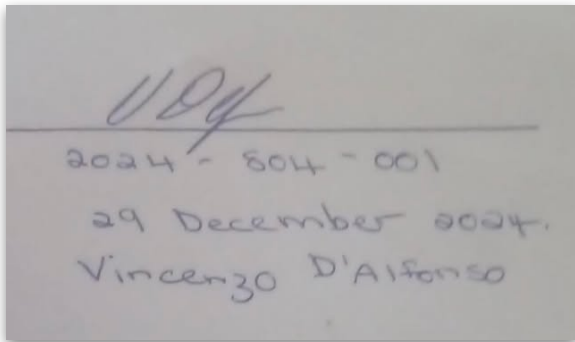 2024 - 504 - 001
29 December 2024.
Vincenzo D'Alfonso